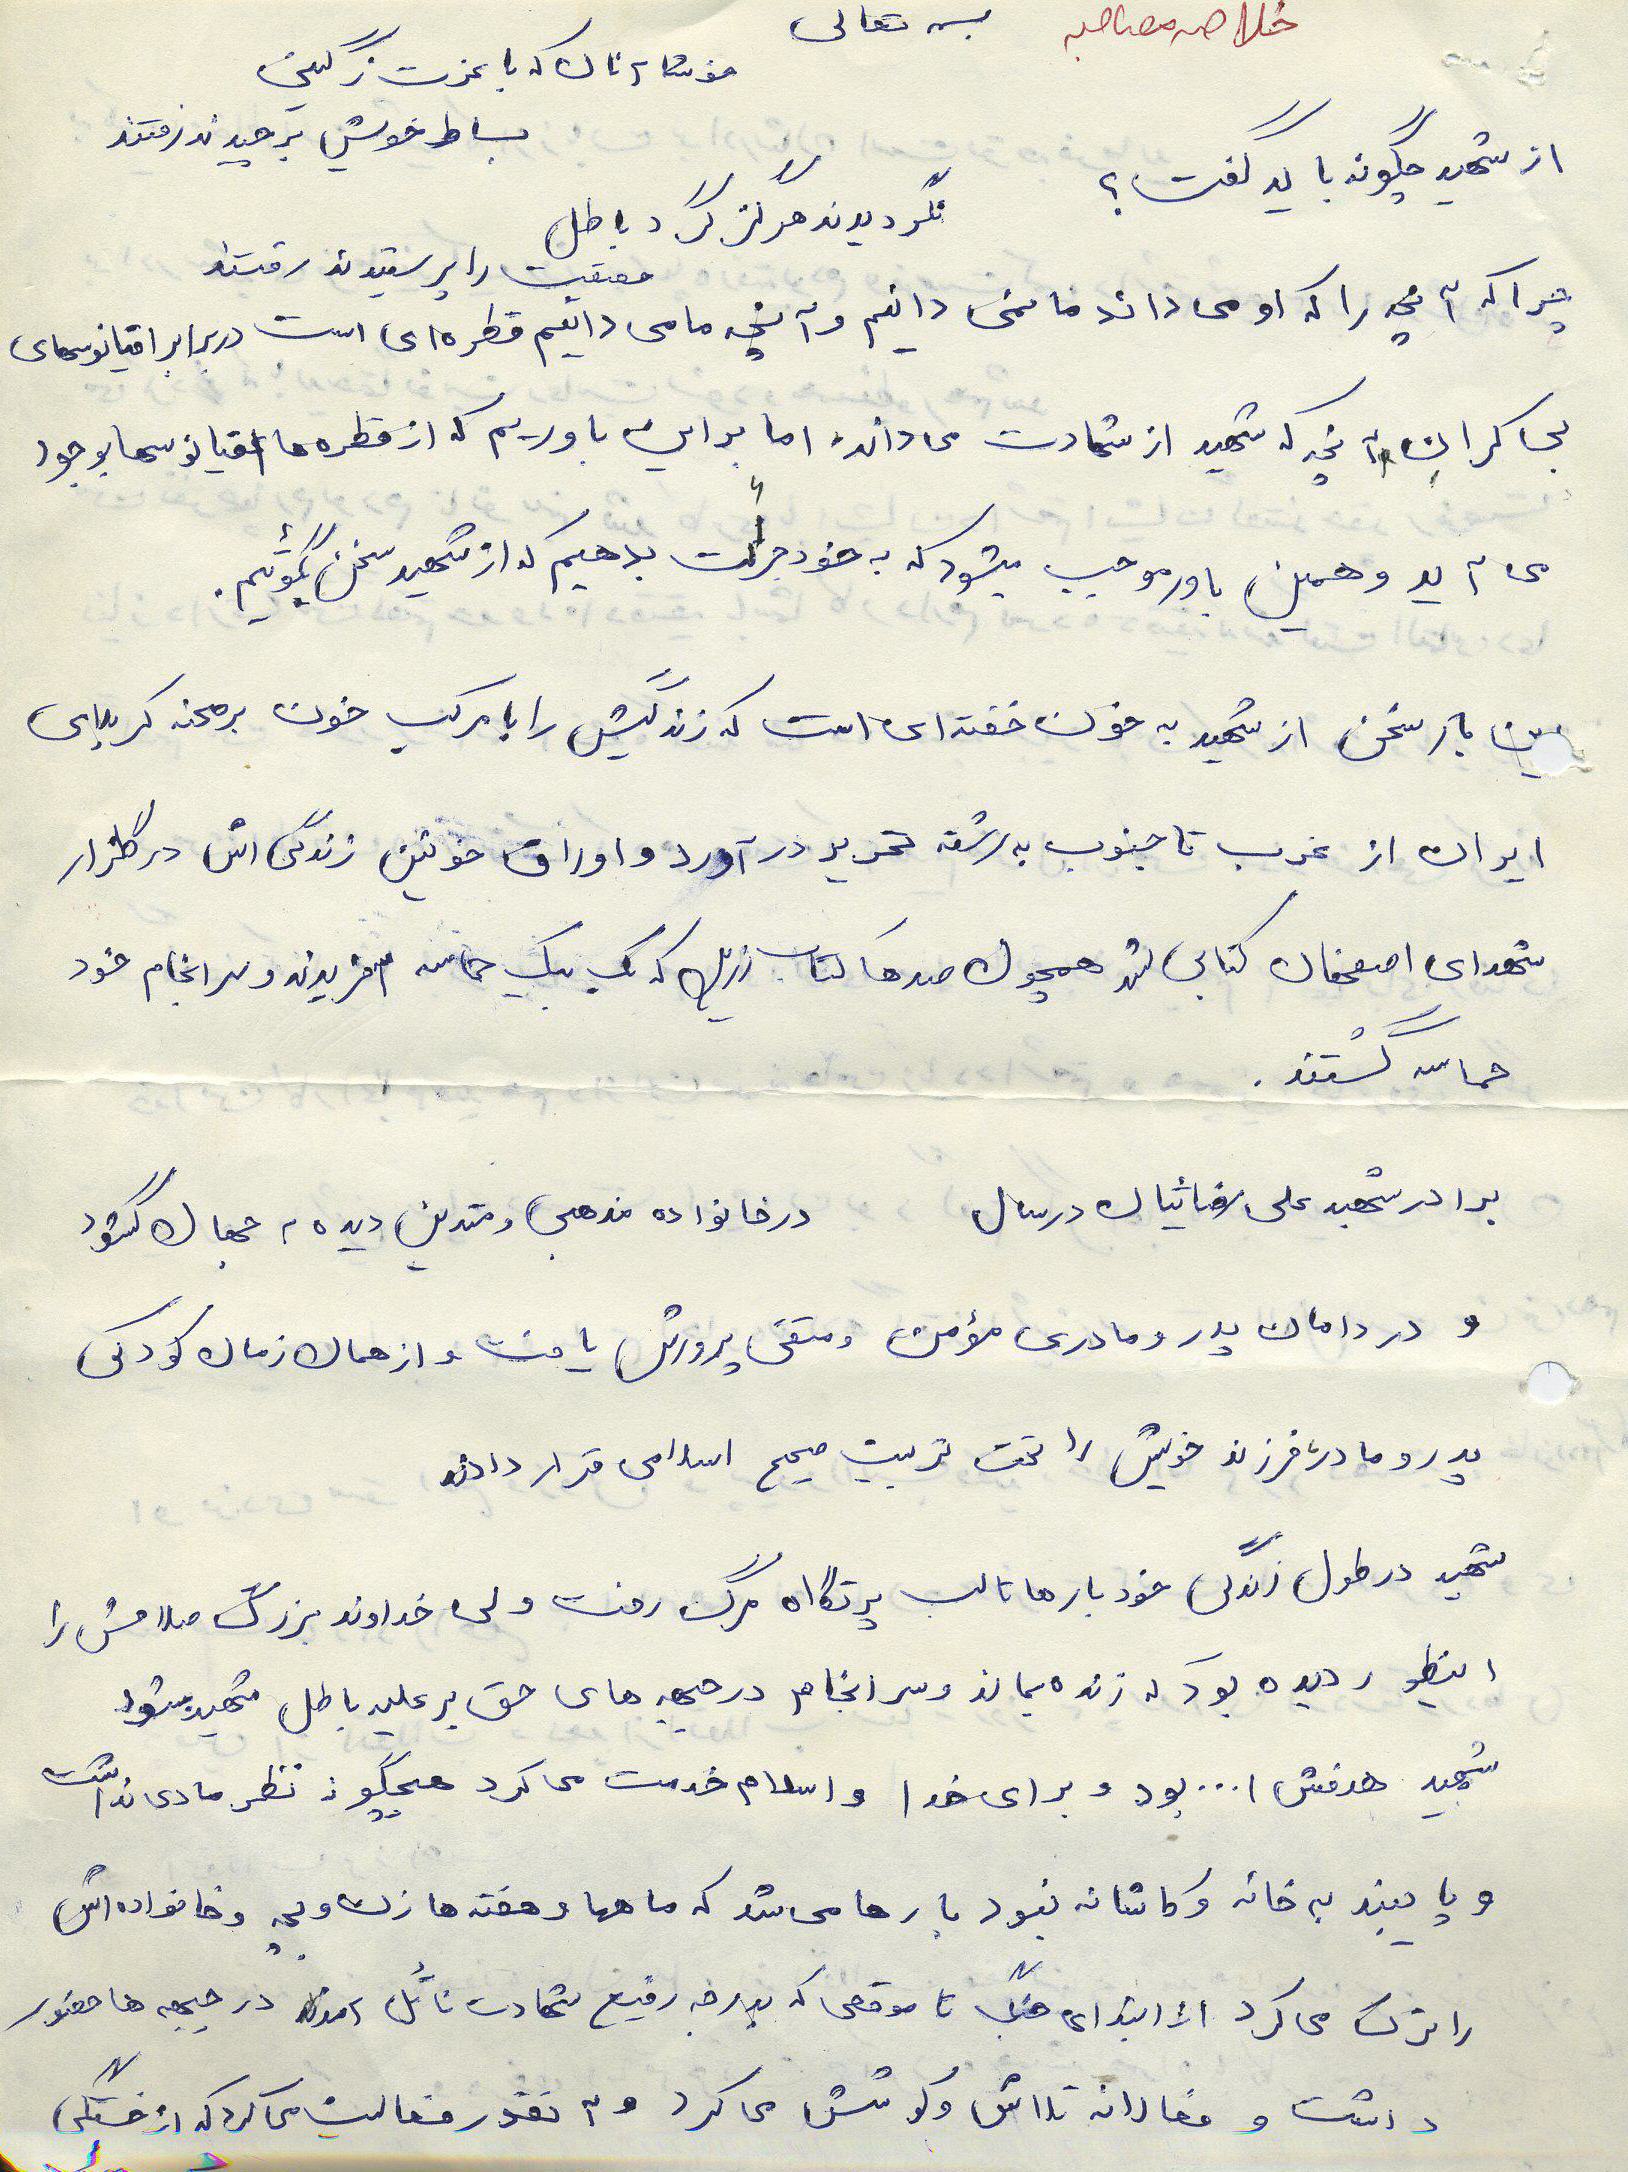 خلاصه مصاحبه
بسمه تعالی
خوشا آنان که با عزت ز گیتی
بساط خویش برچیدند رفتند
از شهید چگونه باید گفت؟
نگردیدند هرگز گرد باطل
حقیقت را پرستیدند رفتند
چرا که آنچه را که او می داند ما نمی دانیم و آنچه ما می دانیم قطره ای است در برابر اقیانوسهای
بی کران آنچه که شهید از شهادت می داند، اما بر این باوریم که از قطره ها اقیانوسها بوجود
می آید و همین باور موجب میشود که به خود جرات بدهیم که از شهید سخن بگوئیم.
این بار سخن از شهید به خون خفته ای است که زندگیش را با مرکب خون بر صحنه کربلای
ایران از غرب تا جنوب به رشته تحریر در آورد و اوراق خونین زندگی اش در گلزار
شهدای اصفهان کتابی شد همچون صدها کتاب که یک بیک حماسه آفریدند و سرانجام خود
حماسه گشتند.
برادر شهید علی در سال در خانواده مذهبی و متدین دیده به جهان گشود
و در دامان پدر و مادری مؤمن و متقی پرورش یافت و از همان زمان کودکی
پدر و مادر، فرزند خویش را تحت تربیت صحیح اسلامی قرار دادند
شهید در طول زندگی خود بارها تا لب پرتگاه مرگ رفت ولی خداوند بزرگ صلاحش را
اینطور دیده بود که زنده بماند و سرانجام در جبهه های حق بر علیه باطل شهید بشود
شهید هدفش ا... بود و برای خدا و اسلام خدمت می کرد هیچگونه نظر مادی نداشت
و پایبند به خانه و کاشانه نبود بارها می شد که ماهها و هفته ها زن و بچه و خانواده اش
را ترک می کرد از ابتدای جنگ تا موقعی که بدرجه رفیع شهادت نائل آمد در جبهه ها حضور
داشت و فعالانه تلاش و کوشش می کرد و آنقدر فعالیت می کرد که از خستگی